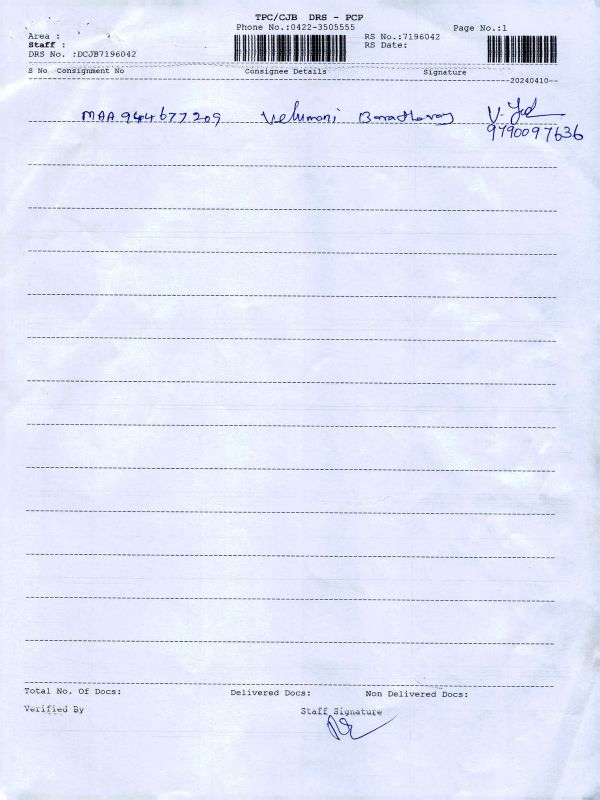 TPC/CJB DRS - PCP
Phone No.:0422-3505555
Page No.:1
Area :
RS No.:7196042
Staff :
RS Date:
DRS No. :DCJB7196042
S No Consignment No Consignee Details Signature
20240410
MAA 944677209 Velumani
9790097636
Total No. Of Docs: Delivered Docs: Non Delivered Docs:
Verified By Staff Signature